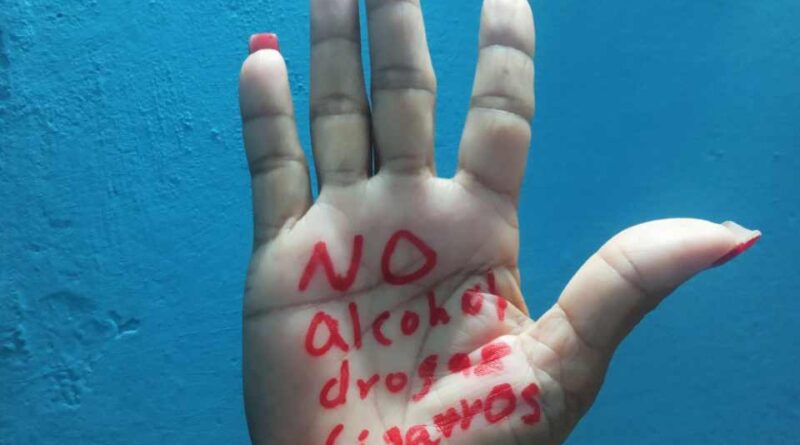 NO
alcohol
drogas
Cigarros